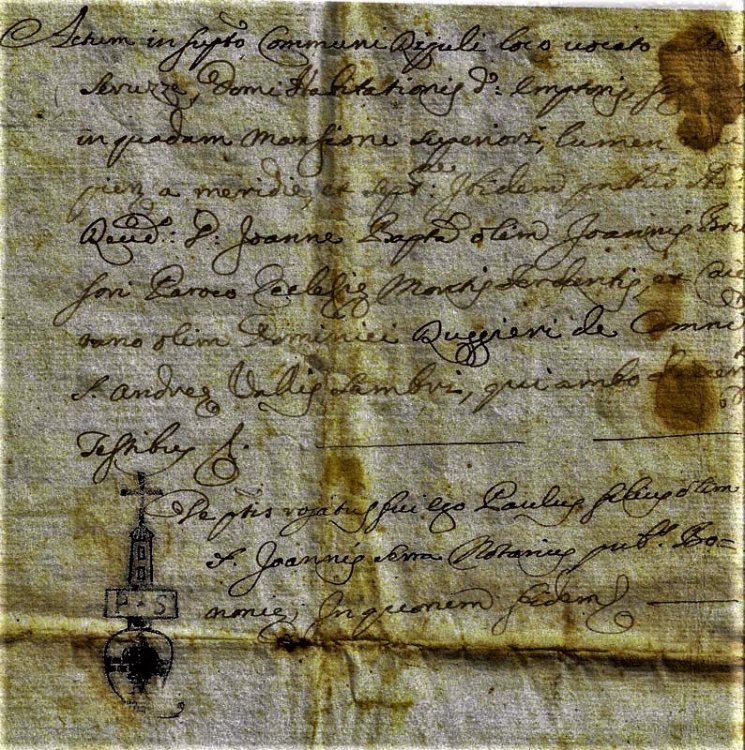 Actum in supto Communi Rijuli loco vocato
Seruzze, Domi Habitationis d: Emptoris,
in quadam Mansione superiori, lumen
pien a meridie, et sept: Ibidem pntibus
de
Reud: D: Joanne Bapta olim Joannis
sori Paroco Ecclesie Montis Ardentis, et
tano olim Dominici Ruggieri de Comni
S. Andree Vallis Lambri, qui ambo
Testibus
De ptis rogatus fui ego Paulus filius olim
S. Joannis Serra Notarius pub. Bo=
nonie; In quorum fidem
P S